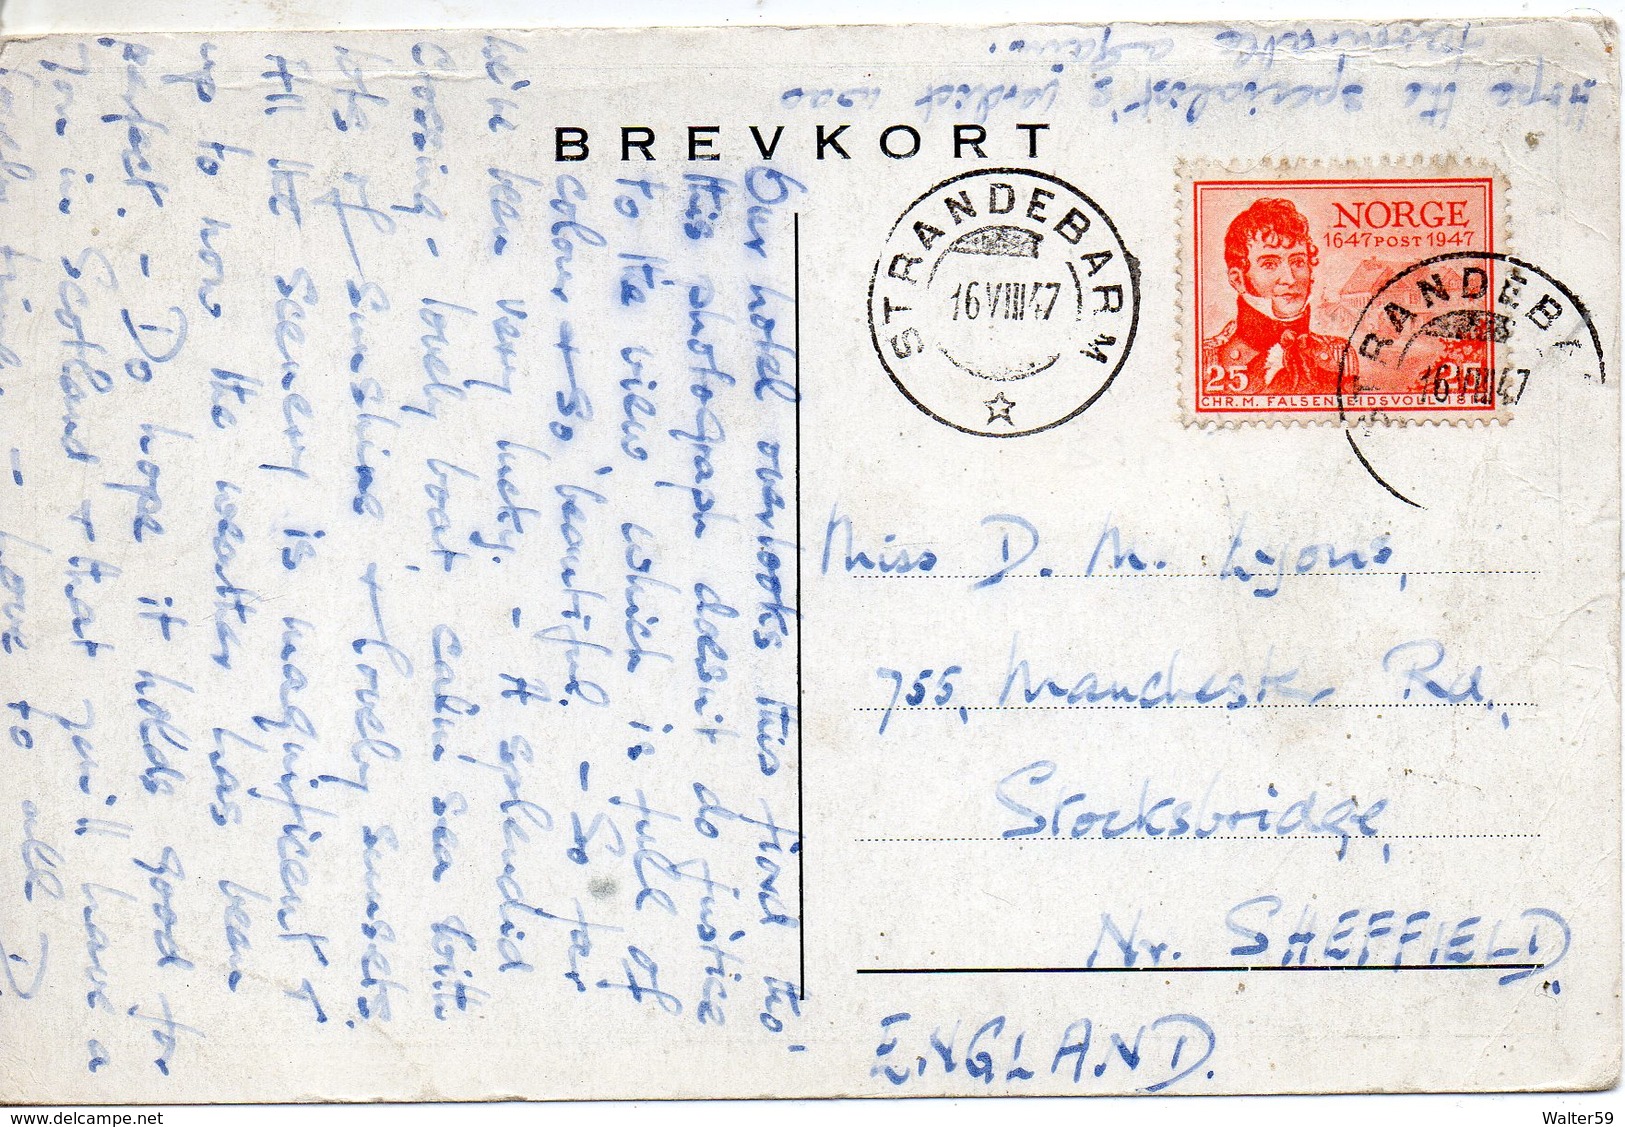 BREVKORT
Our hotel overlooks this fiord tho'
this photograph doesn't do justice
to the view which is full of
colour + so beautiful. - So far
we've been very lucky. - A splendid
crossing - lovely boat, calm sea with
lots of sunshine + lovely sunsets.
All the scenery is magnificent +
up to now the weather has been
perfect. - Do hope it holds good for
you in Scotland + that you'll have a
lovely time - Love to all D.
Hope the specialist's verdict was
favourable again.
STRANDEBARM
16 VIII 47
NORGE
1647 POST 1947
25
25
CHR. M. FALSEN EIDSVOLL
STRANDEB
16 VIII 47
Miss D. M. Lyons,
755, Manchester Rd.,
Stocksbridge,
Nr. SHEFFIELD.
ENGLAND.
www.delcampe.net
Walter59